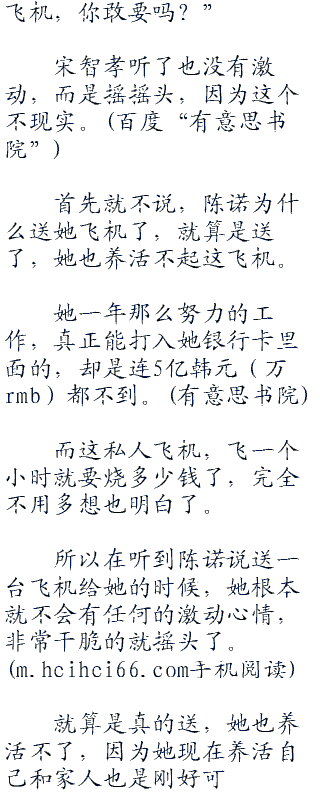 飞机，你敢要吗？”
宋智孝听了也没有激
动，而是摇摇头，因为这个
不现实。(百度“有意思书
院”)
首先就不说，陈诺为什
么送她飞机了，就算是送
了，她也养活不起这飞机。
她一年那么努力的工
作，真正能打入她银行卡里
面的，却是连5亿韩元（万
rmb）都不到。(有意思书院)
而这私人飞机，飞一个
小时就要烧多少钱了，完全
不用多想也明白了。
所以在听到陈诺说送一
台飞机给她的时候，她根本
就不会有任何的激动心情，
非常干脆的就摇头了。
(m.hcihci66.com手机阅读)
就算是真的送，她也养
活不了，因为她现在养活自
己和家人也是刚好可